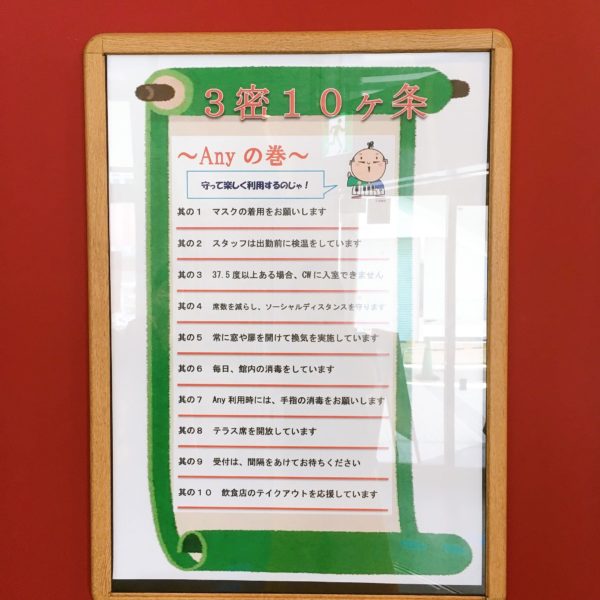 3密10ヶ条
～Anyの巻～
守って楽しく利用するのじゃ！
其の1 マスクの着用をお願いします
其の2 スタッフは出勤前に検温をしています
其の3 37.5度以上ある場合、CWに入室できません
其の4 席数を減らし、ソーシャルディスタンスを守ります
其の5 常に窓や扉を開けて換気を実施しています
其の6 毎日、館内の消毒をしています
其の7 Any利用時には、手指の消毒をお願いします
其の8 テラス席を開放しています
其の9 受付は、間隔をあけてお待ちください
其の10 飲食店のテイクアウトを応援しています